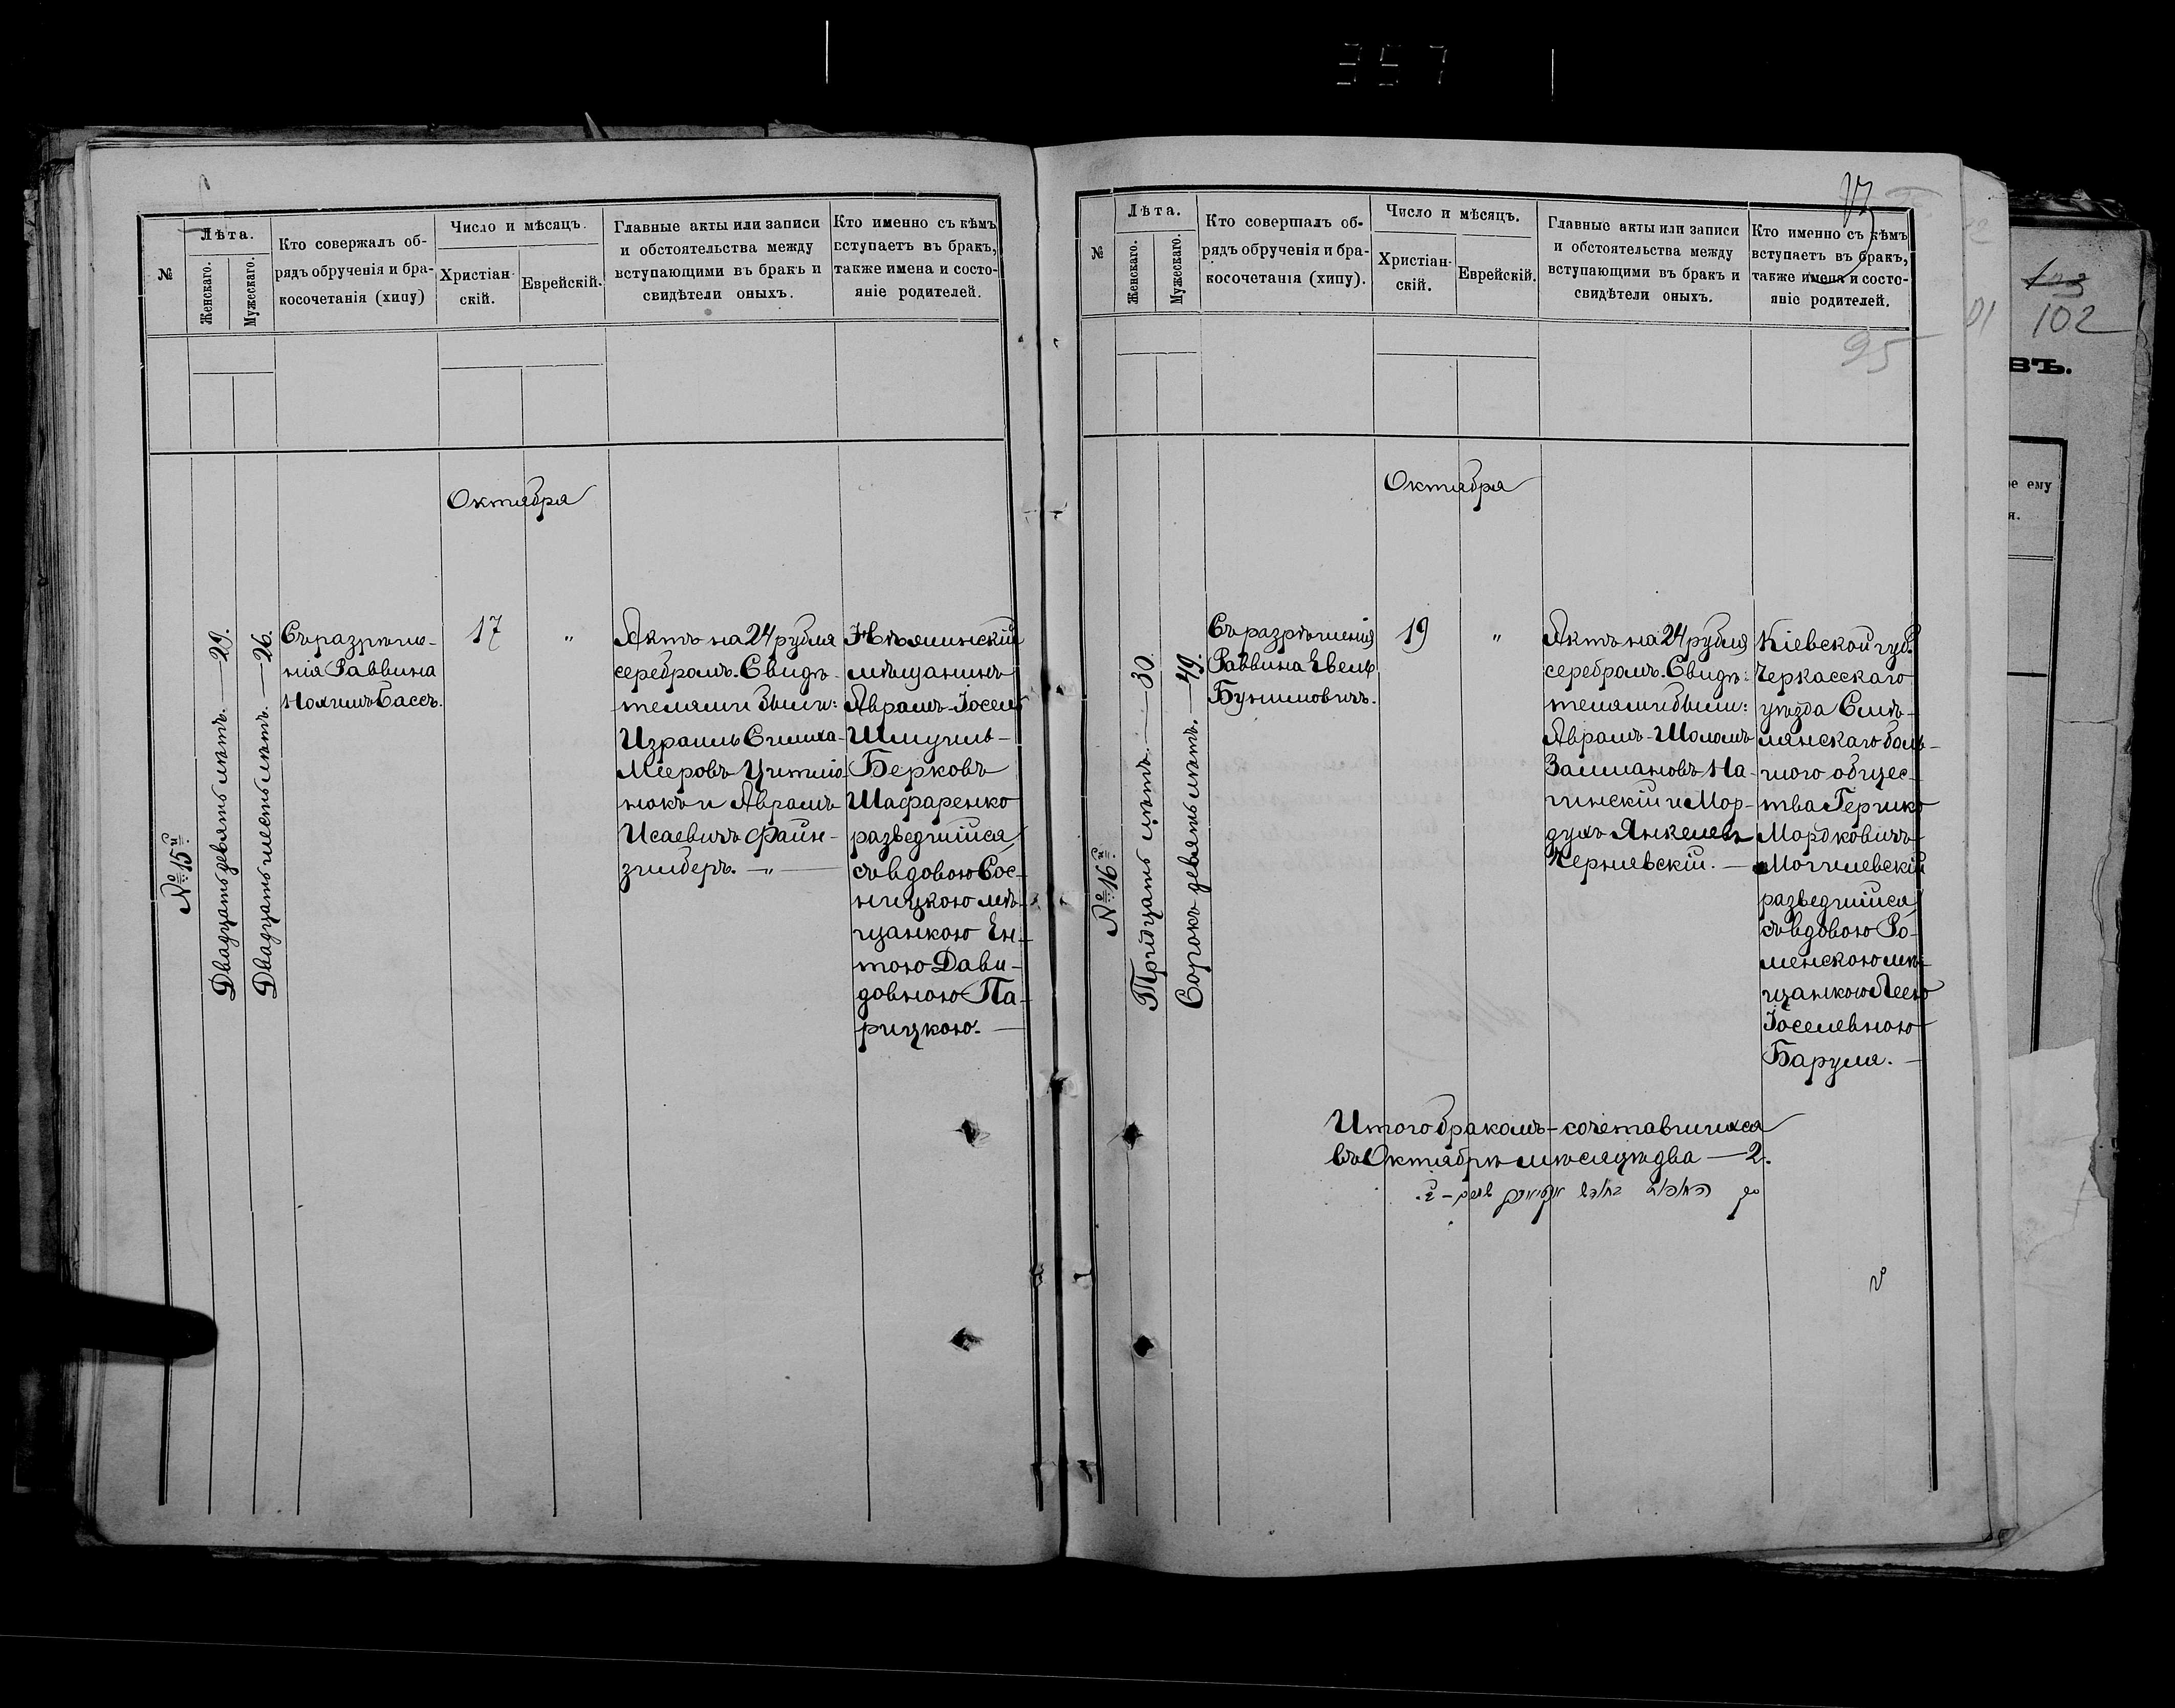 357
№
Лѣта.
Женскаго.
Мужескаго.
Кто совержалъ об-
рядъ обрученія и бра-
косочетанія (хипу)
Число и мѣсяцъ.
Христіан-
скій.
Еврейскій.
Главные акты или записи
и обстоятельства между
вступающими въ бракъ и
свидѣтели оныхъ.
Кто именно съ кѣмъ
вступаетъ въ бракъ,
также имена и состо-
яніе родителей.
Октября
№ 15й
Двадцать девять лѣтъ. — 29.
Двадцать шесть лѣтъ. — 26.
Съ разрѣше-
нія Раввина
Нохимъ Бассъ.
17
"
Актъ на 24 рубля
серебромъ. Свидѣ-
телями были:
Израиль Симха-
Міеровъ
и Аврамъ
Исаевичъ Файн-
зильберъ. — " —
мѣщанинъ
Аврамъ-Іосель
Шмуиль-
Берковъ
Шафаренко
разведшійся
съ вдовою Сос-
ницкою мѣ-
щанкою Ен-
тою Дави-
довною Па-
рицкою. —
№
Лѣта.
Женскаго.
Мужескаго.
Кто совершалъ об-
рядъ обрученія и бра-
косочетанія (хипу).
Число и мѣсяцъ.
Христіан-
скій.
Еврейскій.
Главные акты или записи
и обстоятельства между
вступающими въ бракъ и
свидѣтели оныхъ.
Кто именно съ кѣмъ
вступаетъ въ бракъ,
также имена и состо-
яніе родителей.
95
Октября
№ 16й.
Тридцать лѣтъ — 30
Сорокъ девять лѣтъ. — 49.
Съ разрѣшенія
Раввина Евель
Бунимовичъ.
19
"
Актъ на 24 рубля
серебромъ. Свидѣ-
телями были:
Аврамъ-Шоломъ
Залмановъ На-
гинскій и Мор-
духъ Янкелевъ
Черневскій. —
Кіевской губ.
Черкасскаго
уѣзда Смѣ-
лянскаго
общес-
тва Гершко
Мордковичъ
Могилевскій
разведшійся
съ вдовою Ро-
менскою мѣ-
щанкою Леею
Іоселевною
Баруля. —
Итого бракомъ-сочетавшихся
въ Октябрѣ мѣсяцѣ два — 2.
103
102
ВЪ.
е ему
я.